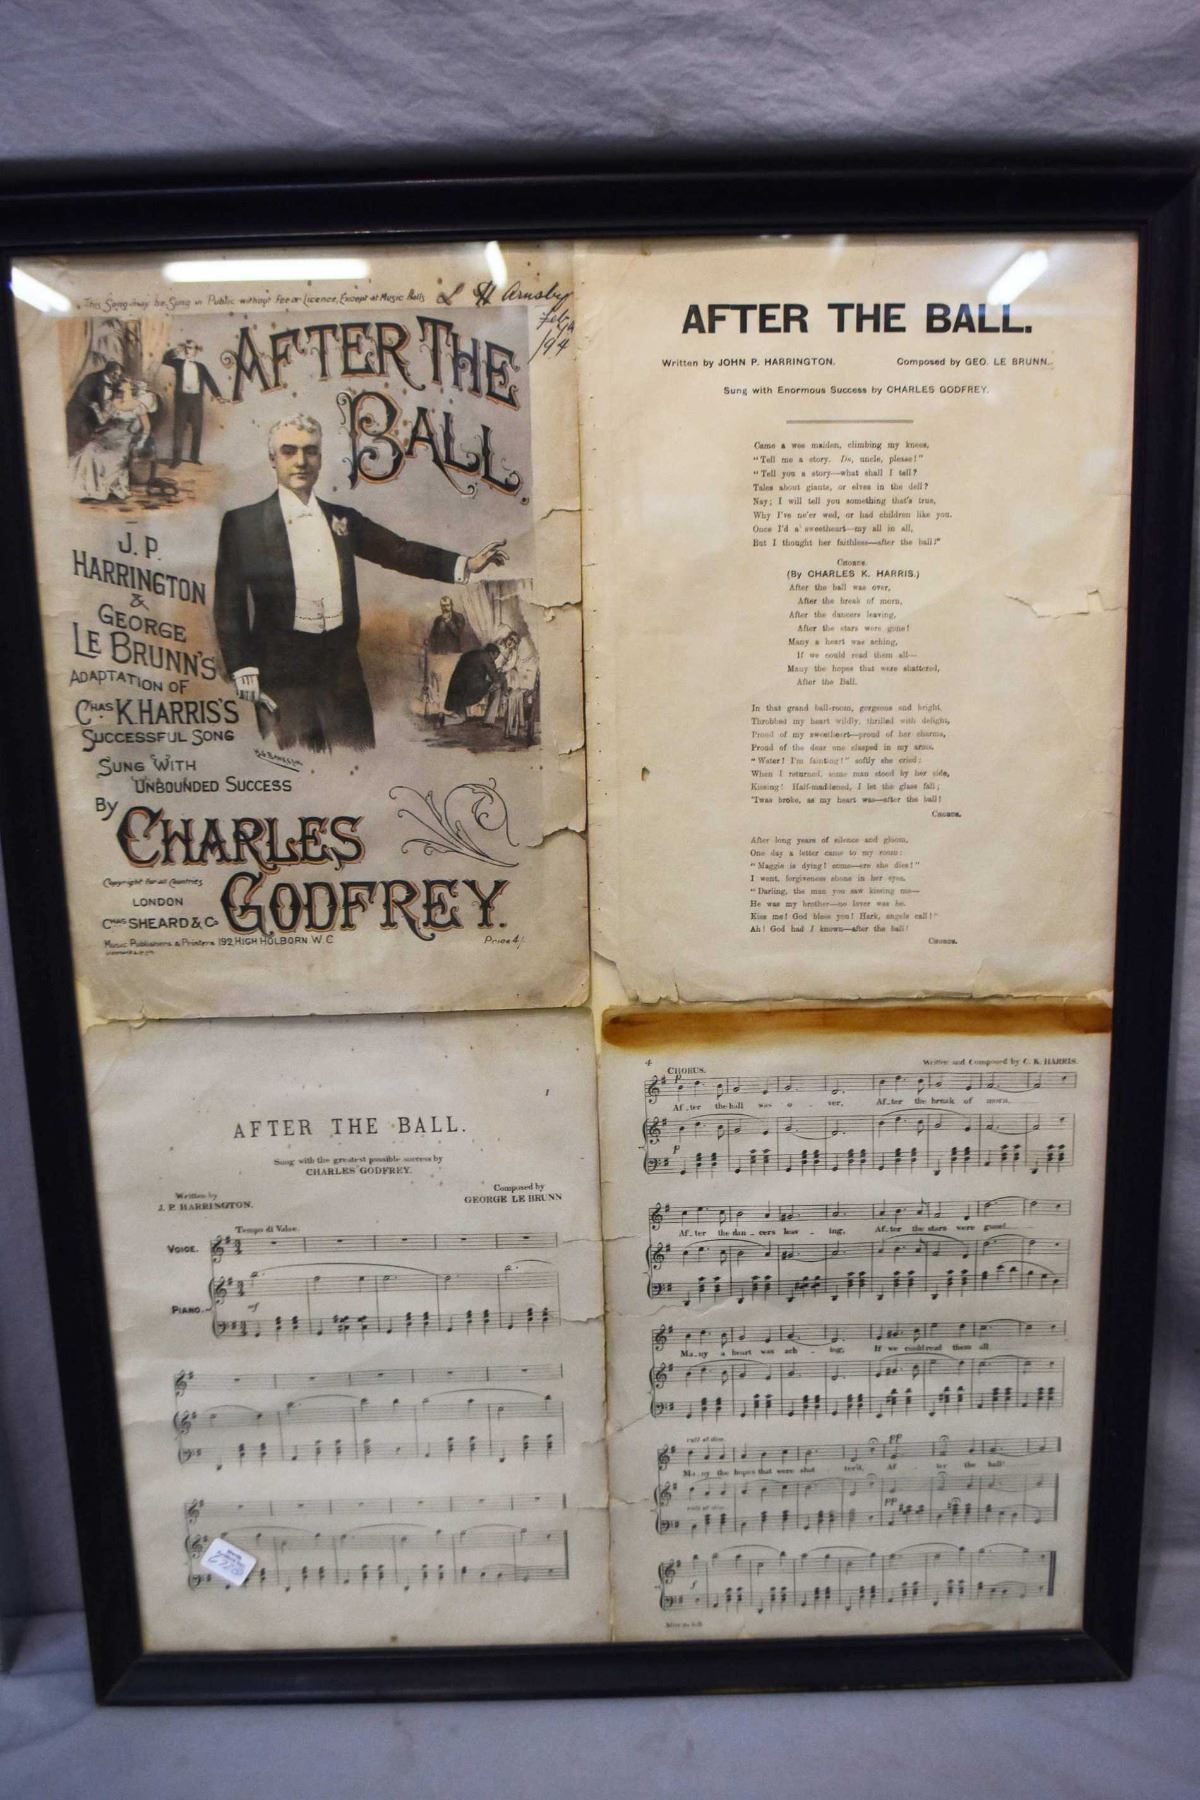 This Song may be Sung in Public without Fee or Licence, Except at Music Halls
H Arnsby
Feb
/94
AFTER THE
BALL.
J. P.
HARRINGTON
&
GEORGE
LE BRUNN'S
ADAPTATION OF
CHAS K. HARRIS'S
SUCCESSFUL SONG
SUNG WITH
UNBOUNDED SUCCESS
BY
CHARLES
GODFREY.
Copyright for all Countries
LONDON
CHAS SHEARD & Co
Music Publishers & Printers 192, HIGH HOLBORN W. C
Price 4/-
AFTER THE BALL.
Written by JOHN P. HARRINGTON. Composed by GEO. LE BRUNN.
Sung with Enormous Success by CHARLES GODFREY.
Came a wee maiden, climbing my knees,
"Tell me a story. Do, uncle, please!"
"Tell you a story—what shall I tell?
Tales about giants, or elves in the dell?
Nay; I will tell you something that's true,
Why I've ne'er wed, or had children like you.
Once I'd a sweetheart—my all in all,
But I thought her faithless—after the ball!"
CHORUS.
(By CHARLES K. HARRIS.)
After the ball was over,
After the break of morn,
After the dancers leaving,
After the stars were gone!
Many a heart was aching,
If we could read them all—
Many the hopes that were shattered,
After the Ball.
In that grand ball-room, gorgeous and bright,
Throbbed my heart wildly, thrilled with delight,
Proud of my sweetheart—proud of her charms,
Proud of the dear one clasped in my arms.
"Water! I'm fainting!" softly she cried;
When I returned, some man stood by her side,
Kissing! Half-maddened, I let the glass fall;
'Twas broke, as my heart was—after the ball!
CHORUS.
After long years of silence and gloom,
One day a letter came to my room:
"Maggie is dying! come—ere she dies!"
I went, forgiveness shone in her eyes.
"Darling, the man you saw kissing me—
He was my brother—no lover was he.
Kiss me! God bless you! Hark, angels call!"
Ah! God had I known—after the ball!
CHORUS.
1
AFTER THE BALL.
Sung with the greatest possible success by
CHARLES GODFREY.
Written by
J. P. HARRINGTON.
Composed by
GEORGE LE BRUNN
Tempo di Valse.
VOICE.
PIANO.
mf
4
Written and Composed by C. K. HARRIS.
CHORUS.
p
Af_ter the ball was o - ver, Af_ter the break of morn,
p
Af_ter the dan_cers leav - ing, Af_ter the stars were gone!
Ma_ny a heart was ach - ing, If we could read them all
rall et dim. pp
Ma_ny the hopes that were shat - ter'd, Af - ter the ball!
rall et dim. pp
f